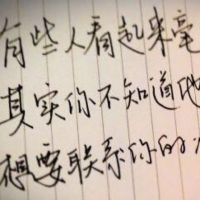 有些人看起来毫
其实你不知道他
想要联系你的